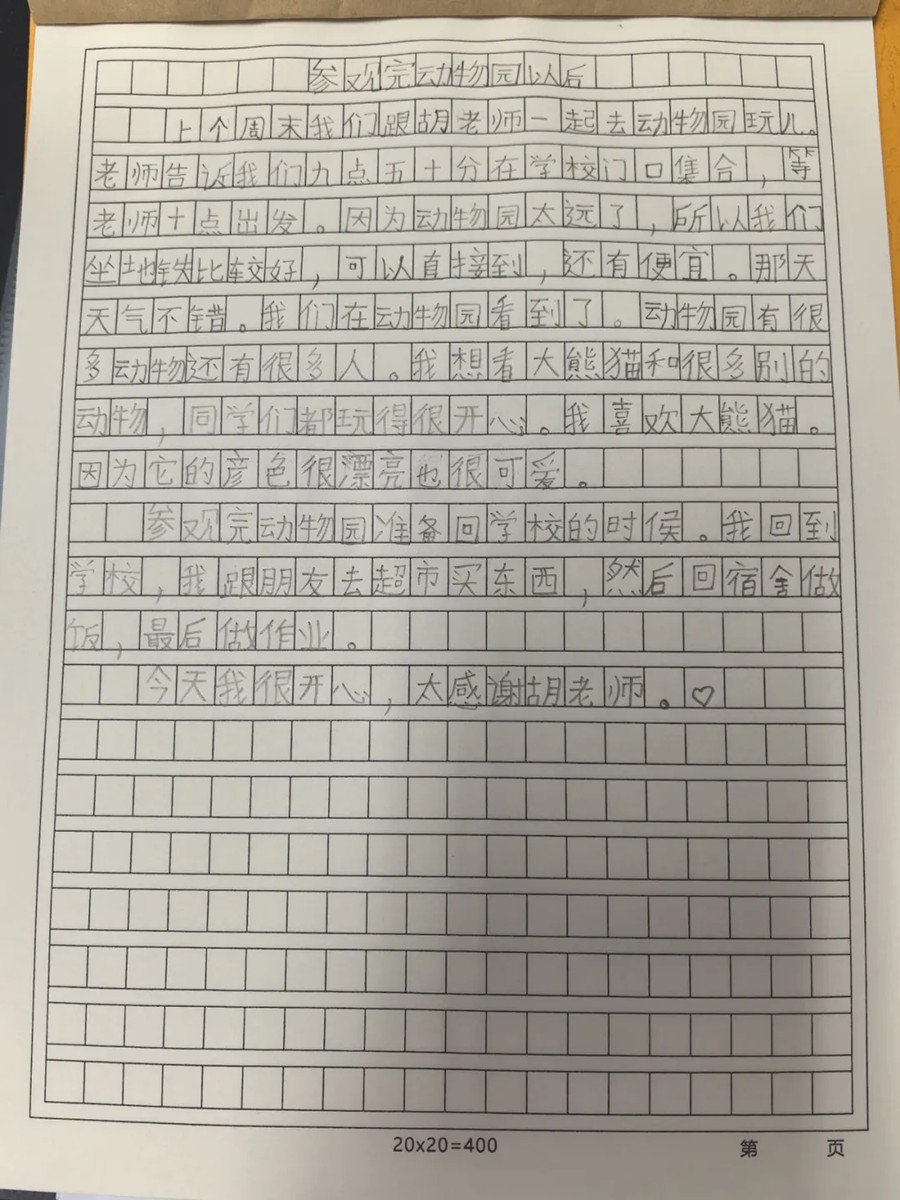 参观完动物园以后
上个周末我们跟胡老师一起去动物园玩儿。
老师告诉我们九点五十分在学校门口集合，等
老师十点出发。因为动物园太远了，所以我们
坐地铁比较好，可以直接到，还有便宜。那天
天气不错。我们在动物园看到了。动物园有很
多动物还有很多人。我想看大熊猫和很多别的
动物，同学们都玩得很开心。我喜欢大熊猫。
因为它的彦色很漂亮也很可爱。
参观完动物园准备回学校的时候。我回到
学校，我跟朋友去超市买东西，然后回宿舍做
饭，最后做作业。
今天我很开心，太感谢胡老师。♡
20x20=400
第 页